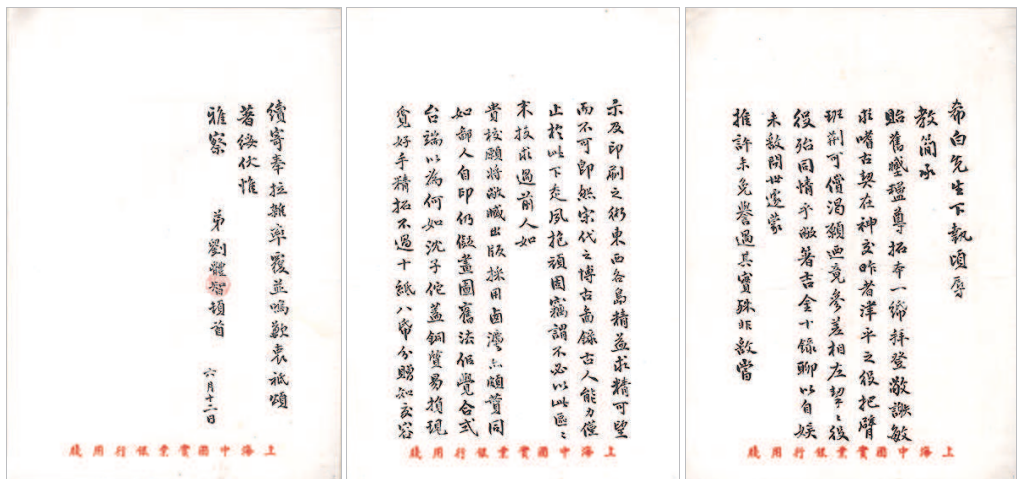 希白先生下執頃辱
教簡承
貽舊藏盨尊拓本一緘拜登敬謝敏
求嗜古契在神交昨者津平之役把臂
班荆可償渴願迺竟參差相左契契役
役殆同情乎敝著吉金十錄聊以自娛
未敢問世遽蒙
推許未免譽過其實殊非敢當
上海中國實業銀行用牋
示及印刷之術東西各島精益求精可望
而不可即然宋代之博古圖錄古人能力僅
止於此下走夙抱頑固竊謂不必以此區區
末技求過前人如
貴校願將敝藏出版採用鹵灣亦頗贊同
如鄙人自印仍儗蓋圖舊法但覺合式
台端以為何如沈子佗蓋銅質易損現
覓好手精拓不過十紙八帋分贈知交容
上海中國實業銀行用牋
續寄奉拉雜率覆並鳴歉衷祗頌
著綏伏惟
雅察
弟劉體智頓首
六月十二日
上海中國實業銀行用牋